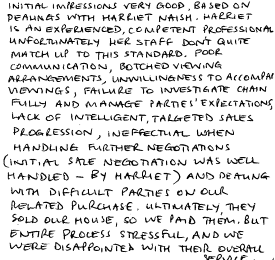 INITIAL IMPRESSIONS VERY GOOD, BASED ON
DEALINGS WITH HARRIET NAISH. HARRIET
IS AN EXPERIENCED, COMPETENT PROFESSIONAL
UNFORTUNATELY HER STAFF DON'T QUITE
MATCH UP TO THIS STANDARD. POOR
COMMUNICATION, BOTCHED VIEWING
ARRANGEMENTS, UNWILLINGNESS TO ACCOMPAN
VIEWINGS, FAILURE TO INVESTIGATE CHAIN
FULLY AND MANAGE PARTIES' EXPECTATIONS,
LACK OF INTELLIGENT, TARGETED SALES
PROGRESSION, INEFFECTUAL WHEN
HANDLING FURTHER NEGOTIATIONS
(INITIAL SALE NEGOTIATION WAS WELL
HANDLED - BY HARRIET) AND DEALING
WITH DIFFICULT PARTIES ON OUR
RELATED PURCHASE. ULTIMATELY, THEY
SOLD OUR HOUSE, SO WE PAID THEM. BUT
ENTIRE PROCESS STRESSFUL, AND WE
WERE DISAPPOINTED WITH THEIR OVERALL